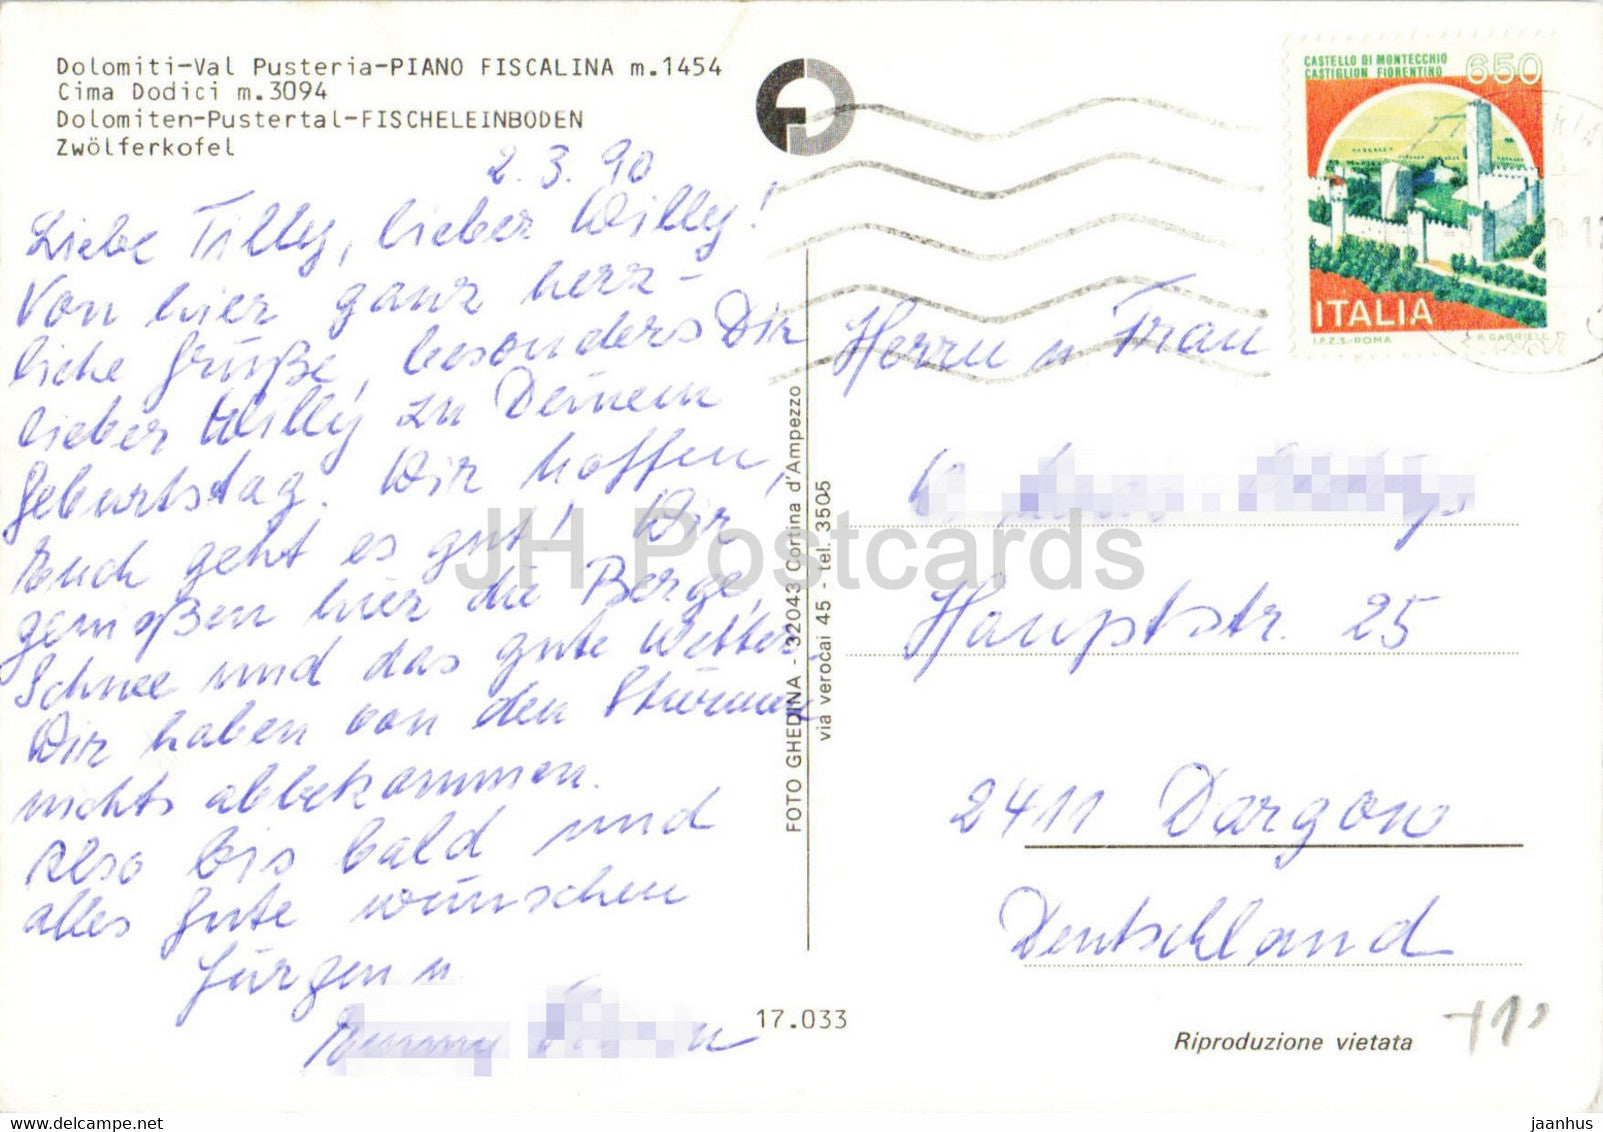 Dolomiti-Val Pusteria-PIANO FISCALINA m.1454
Cima Dodici m.3094
Dolomiten-Pustertal-FISCHELEINBODEN
Zwölferkofel
2.3.90
Liebe Tilly, lieber Willy!
Von hier ganz herz-
liche Grüße, besonders Dir
lieber Willy zu Deinem
Geburtstag. Wir hoffen,
Euch geht es gut! Wir
genießen hier die Berge,
Schnee und das gute Wetter.
Wir haben von den Stürmen
nichts abbekommen.
Also bis bald und
alles Gute wünschen
Jürgen u.
FOTO GHEDINA - 32043 Cortina d'Ampezzo
via verocai 45 - tel. 3505
CASTELLO DI MONTECCHIO
CASTIGLION FIORENTINO
650
ITALIA
I.P.Z.S.-ROMA P. GABRIELE
Herrn u Frau
Hauptstr. 25
2411 Dargow
Deutschland
17.033
Riproduzione vietata
JH Postcards
www.delcampe.net
jaanhus